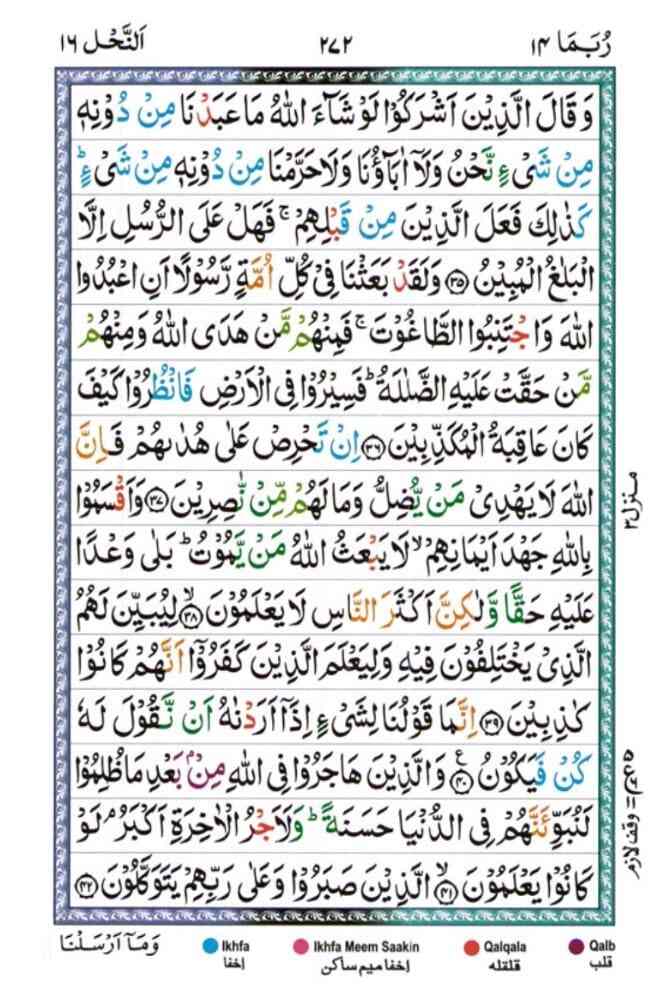 رُبَمَا ۱۴
۲۷۲
اَلنَّحْل ۱۶
وَقَالَ الَّذِيْنَ اَشْرَكُوْا لَوْ شَآءَ اللّٰهُ مَا عَبَدْنَا مِنْ دُوْنِهٖ
مِنْ شَیْءٍ نَّحْنُ وَلَاۤ اٰبَآؤُنَا وَلَا حَرَّمْنَا مِنْ دُوْنِهٖ مِنْ شَیْءٍ ؕ
كَذٰلِكَ فَعَلَ الَّذِيْنَ مِنْ قَبْلِهِمْ ۚ فَهَلْ عَلَی الرُّسُلِ اِلَّا
الْبَلٰغُ الْمُبِيْنُ ﴿۳۵﴾ وَلَقَدْ بَعَثْنَا فِیْ كُلِّ اُمَّةٍ رَّسُوْلًا اَنِ اعْبُدُوا
اللّٰهَ وَاجْتَنِبُوا الطَّاغُوْتَ ۚ فَمِنْهُمْ مَّنْ هَدَی اللّٰهُ وَمِنْهُمْ
مَّنْ حَقَّتْ عَلَيْهِ الضَّلٰلَةُ ؕ فَسِيْرُوْا فِی الْاَرْضِ فَانْظُرُوْا كَيْفَ
كَانَ عَاقِبَةُ الْمُكَذِّبِيْنَ ﴿۳۶﴾ اِنْ تَحْرِصْ عَلٰی هُدٰىهُمْ فَاِنَّ
اللّٰهَ لَا يَهْدِیْ مَنْ يُّضِلُّ وَمَا لَهُمْ مِّنْ نّٰصِرِيْنَ ﴿۳۷﴾ وَاَقْسَمُوْا
بِاللّٰهِ جَهْدَ اَيْمَانِهِمْ ۙ لَا يَبْعَثُ اللّٰهُ مَنْ يَّمُوْتُ ؕ بَلٰی وَعْدًا
عَلَيْهِ حَقًّا وَّلٰكِنَّ اَكْثَرَ النَّاسِ لَا يَعْلَمُوْنَ ﴿۳۸﴾ ۙ لِيُبَيِّنَ لَهُمُ
الَّذِیْ يَخْتَلِفُوْنَ فِيْهِ وَلِيَعْلَمَ الَّذِيْنَ كَفَرُوْۤا اَنَّهُمْ كَانُوْا
كٰذِبِيْنَ ﴿۳۹﴾ اِنَّمَا قَوْلُنَا لِشَیْءٍ اِذَاۤ اَرَدْنٰهُ اَنْ نَّقُوْلَ لَهٗ
كُنْ فَيَكُوْنُ ﴿۴۰﴾ ع وَالَّذِيْنَ هَاجَرُوْا فِی اللّٰهِ مِنْۢ بَعْدِ مَا ظُلِمُوْا
لَنُبَوِّئَنَّهُمْ فِی الدُّنْيَا حَسَنَةً ؕ وَلَاَجْرُ الْاٰخِرَةِ اَكْبَرُ ۘ لَوْ
كَانُوْا يَعْلَمُوْنَ ﴿۴۱﴾ ۙ الَّذِيْنَ صَبَرُوْا وَعَلٰی رَبِّهِمْ يَتَوَكَّلُوْنَ ﴿۴۲﴾
منزل۳
وقف لازم
وَمَاۤ اَرْسَلْنَا
Ikhfa
Ikhfa Meem Saakin
Qalqala
Qalb
اخفا
اخفا میم ساکن
قلقلہ
قلب